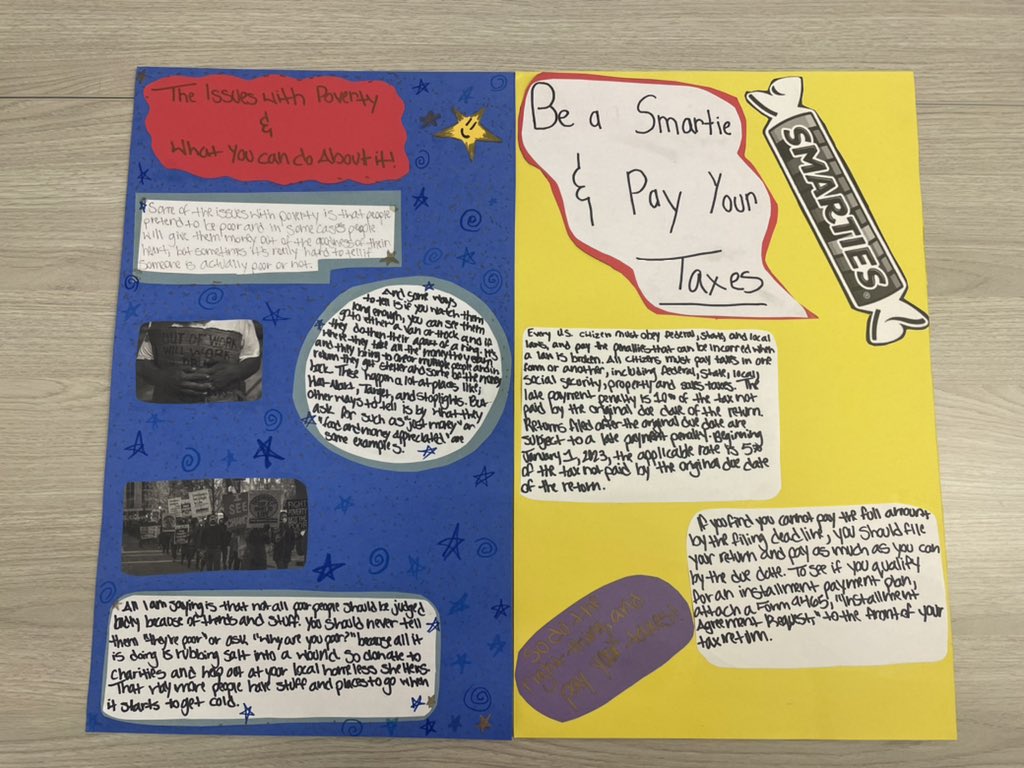 The Issues with Poverty
&
What You can do About it!
Some of the issues with poverty is that people
pretend to be poor and in some cases people
will give them money out of the goodness of their
heart, but sometimes it's really hard to tell if
someone is actually poor or not.
And some ways
to tell is if you watch them
long enough, you can see them
go to either a van or truck and if
they do then their apart of a ring. It's
where they take all the money they earn
and they bring to clear multiple people and in
return they get shelter and some of the money
back. These happen a lot at places like;
Wal-Mart, Target, and stoplights. But
other ways to tell is by what they
ask for such as "just money" or
"food and money appreciated" are
some examples.
OUT OF WORK
WILL WORK
All I am saying is that not all poor people should be judged
badly because of trends and stuff. You should never tell
them "they're poor" or ask "why are you poor?" because all it
is doing is rubbing salt into a wound. So donate to
charities and help out at your local homeless shelters.
That way more people have stuff and places to go when
it starts to get cold.
Be a Smartie
& Pay Your
Taxes
SMARTIES®
Every U.S. citizen must obey federal, state and local
laws, and pay the penalties that can be incurred when
a law is broken. All citizens must pay taxes in one
form or another, including federal, state, local,
social security, property and sales taxes. The
late payment penalty is 10% of the tax not
paid by the original due date of the return.
Returns filed after the original due date are
subject to a late payment penalty. Beginning
January 1, 2023, the applicable rate is 5%
of the tax not paid by the original due date
of the return.
If you find you cannot pay the full amount
by the filing deadline, you should file
your return and pay as much as you can
by the due date. To see if you qualify
for an installment payment plan,
attach a Form 9465, "Installment
Agreement Request," to the front of your
tax return.
So do the
right thing and
pay your taxes!